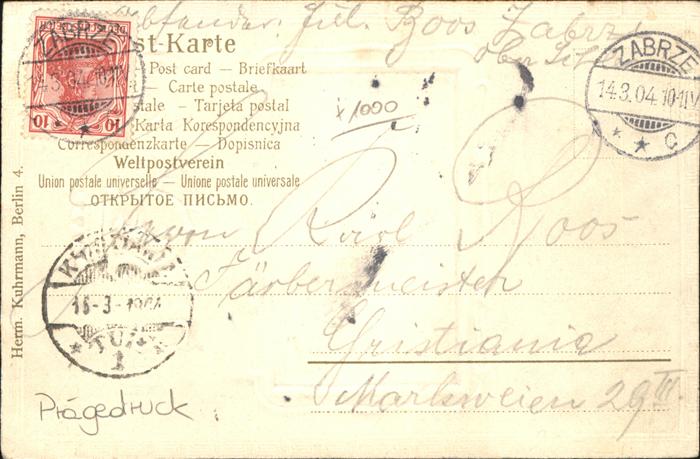 Absender: Jul. Boos Zabrze
Ober
st-Karte
Post card – Briefkaart
Carte postale
stale – Tarjeta postal
Karta Korespondencyjna
Correspondenzkarte – Dopisnica
Weltpostverein
Union postale universelle – Unione postale universale
ОТКРЫТОЕ ПИСЬМО.
ZABRZE
10 10
ZABRZE
14.3.04.10-11V
C
x/1000
Karl Roos
Färbermeister
Cristiania
Markweien 29 III.
15-3-1904
1
Herm. Kuhrmann, Berlin 4.
Prägedruck